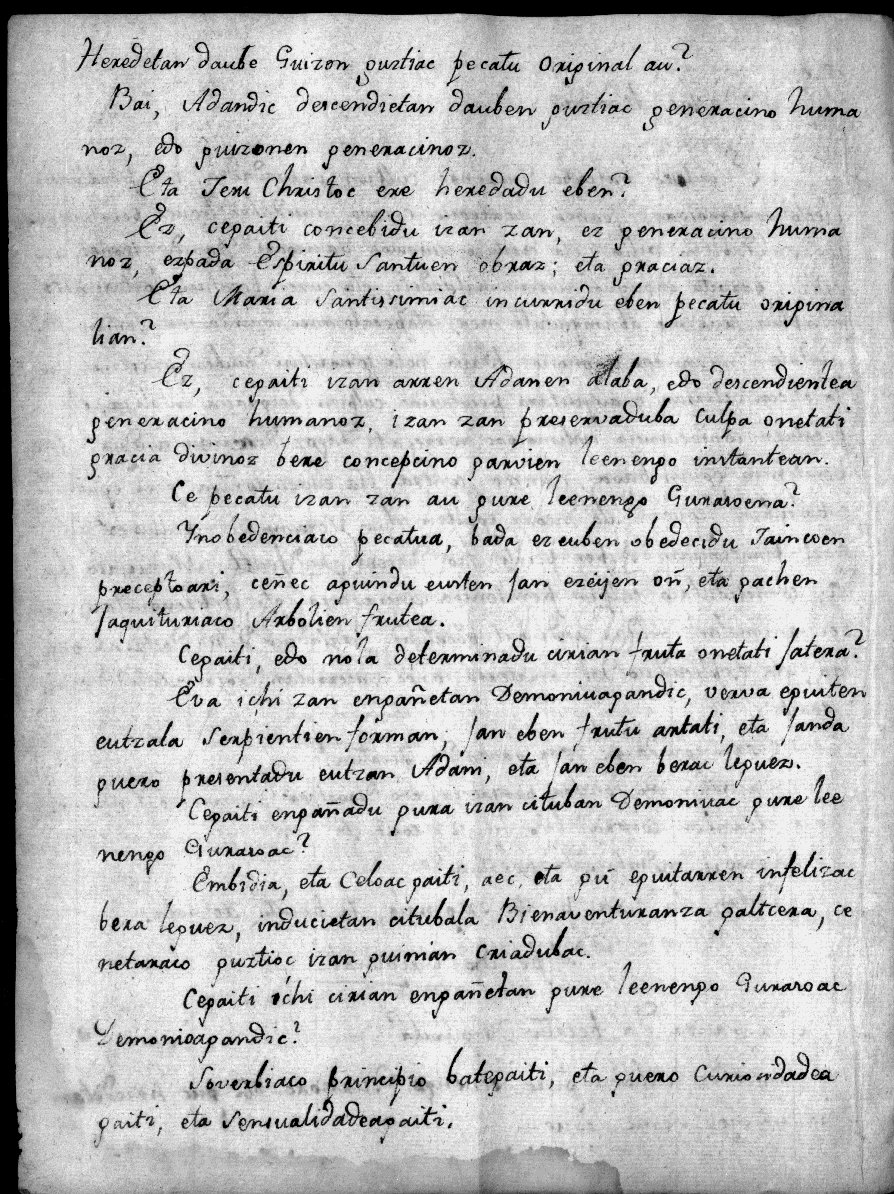 Heredetan daube Guizon guztiac pecatu original au?
Bai, Adandic descendietan dauben guztiac generacino huma
noz, edo guizonen generacinoz.
Eta Jesu Christoc ere heredadu eben?
Ez, cepaiti concebidu izan zan, ez generacino huma
noz, ezpada Espiritu Santuen obraz; eta graciaz.
Eta Maria Santissimiac incurridu eben pecatu origina
lian?
Ez, cepaiti izan arren Adanen alaba, edo descendientea
generacino humanoz, izan zan preservaduba culpa onetati
gracia divinoz bere concepcino garvien leenengo instantean.
Ce pecatu izan zan au gure leenengo Gurasoena?
Ynobedenciaco pecatua, bada ezeuben obedecidu Jaincoen
preceptoari, cenec aguindu eusten Jan ezeijen oñ, eta gachen
Jaquituriaco Arbolien frutea.
Cepaiti, edo nola determinadu cirian fruta onetati Jatera?
Eva ichi zan engañetan Demoniuagandic, verva eguiten
eutzala serpientien forman, Jan eben frutu artati, eta Janda
guero presentadu eutzan Adani, eta Jan eben berac leguez.
Cepaiti engañadu gura izan cituban Demoniuac gure lee
nengo Gurasoac?
Embidia, eta Celoac gaiti, aec, eta gu eguitarren infelizac
bera leguez, inducietan citubala Bienaventuranza galtcera, ce
netaraco guztioc izan guinian criadubac.
Cepaiti ichi cirian engañetan gure leenengo Gurasoac
Demonioagandic?
Soverbiaco principio bategaiti, eta guero Curiosidadea
gaiti, eta sensualidadeagaiti.